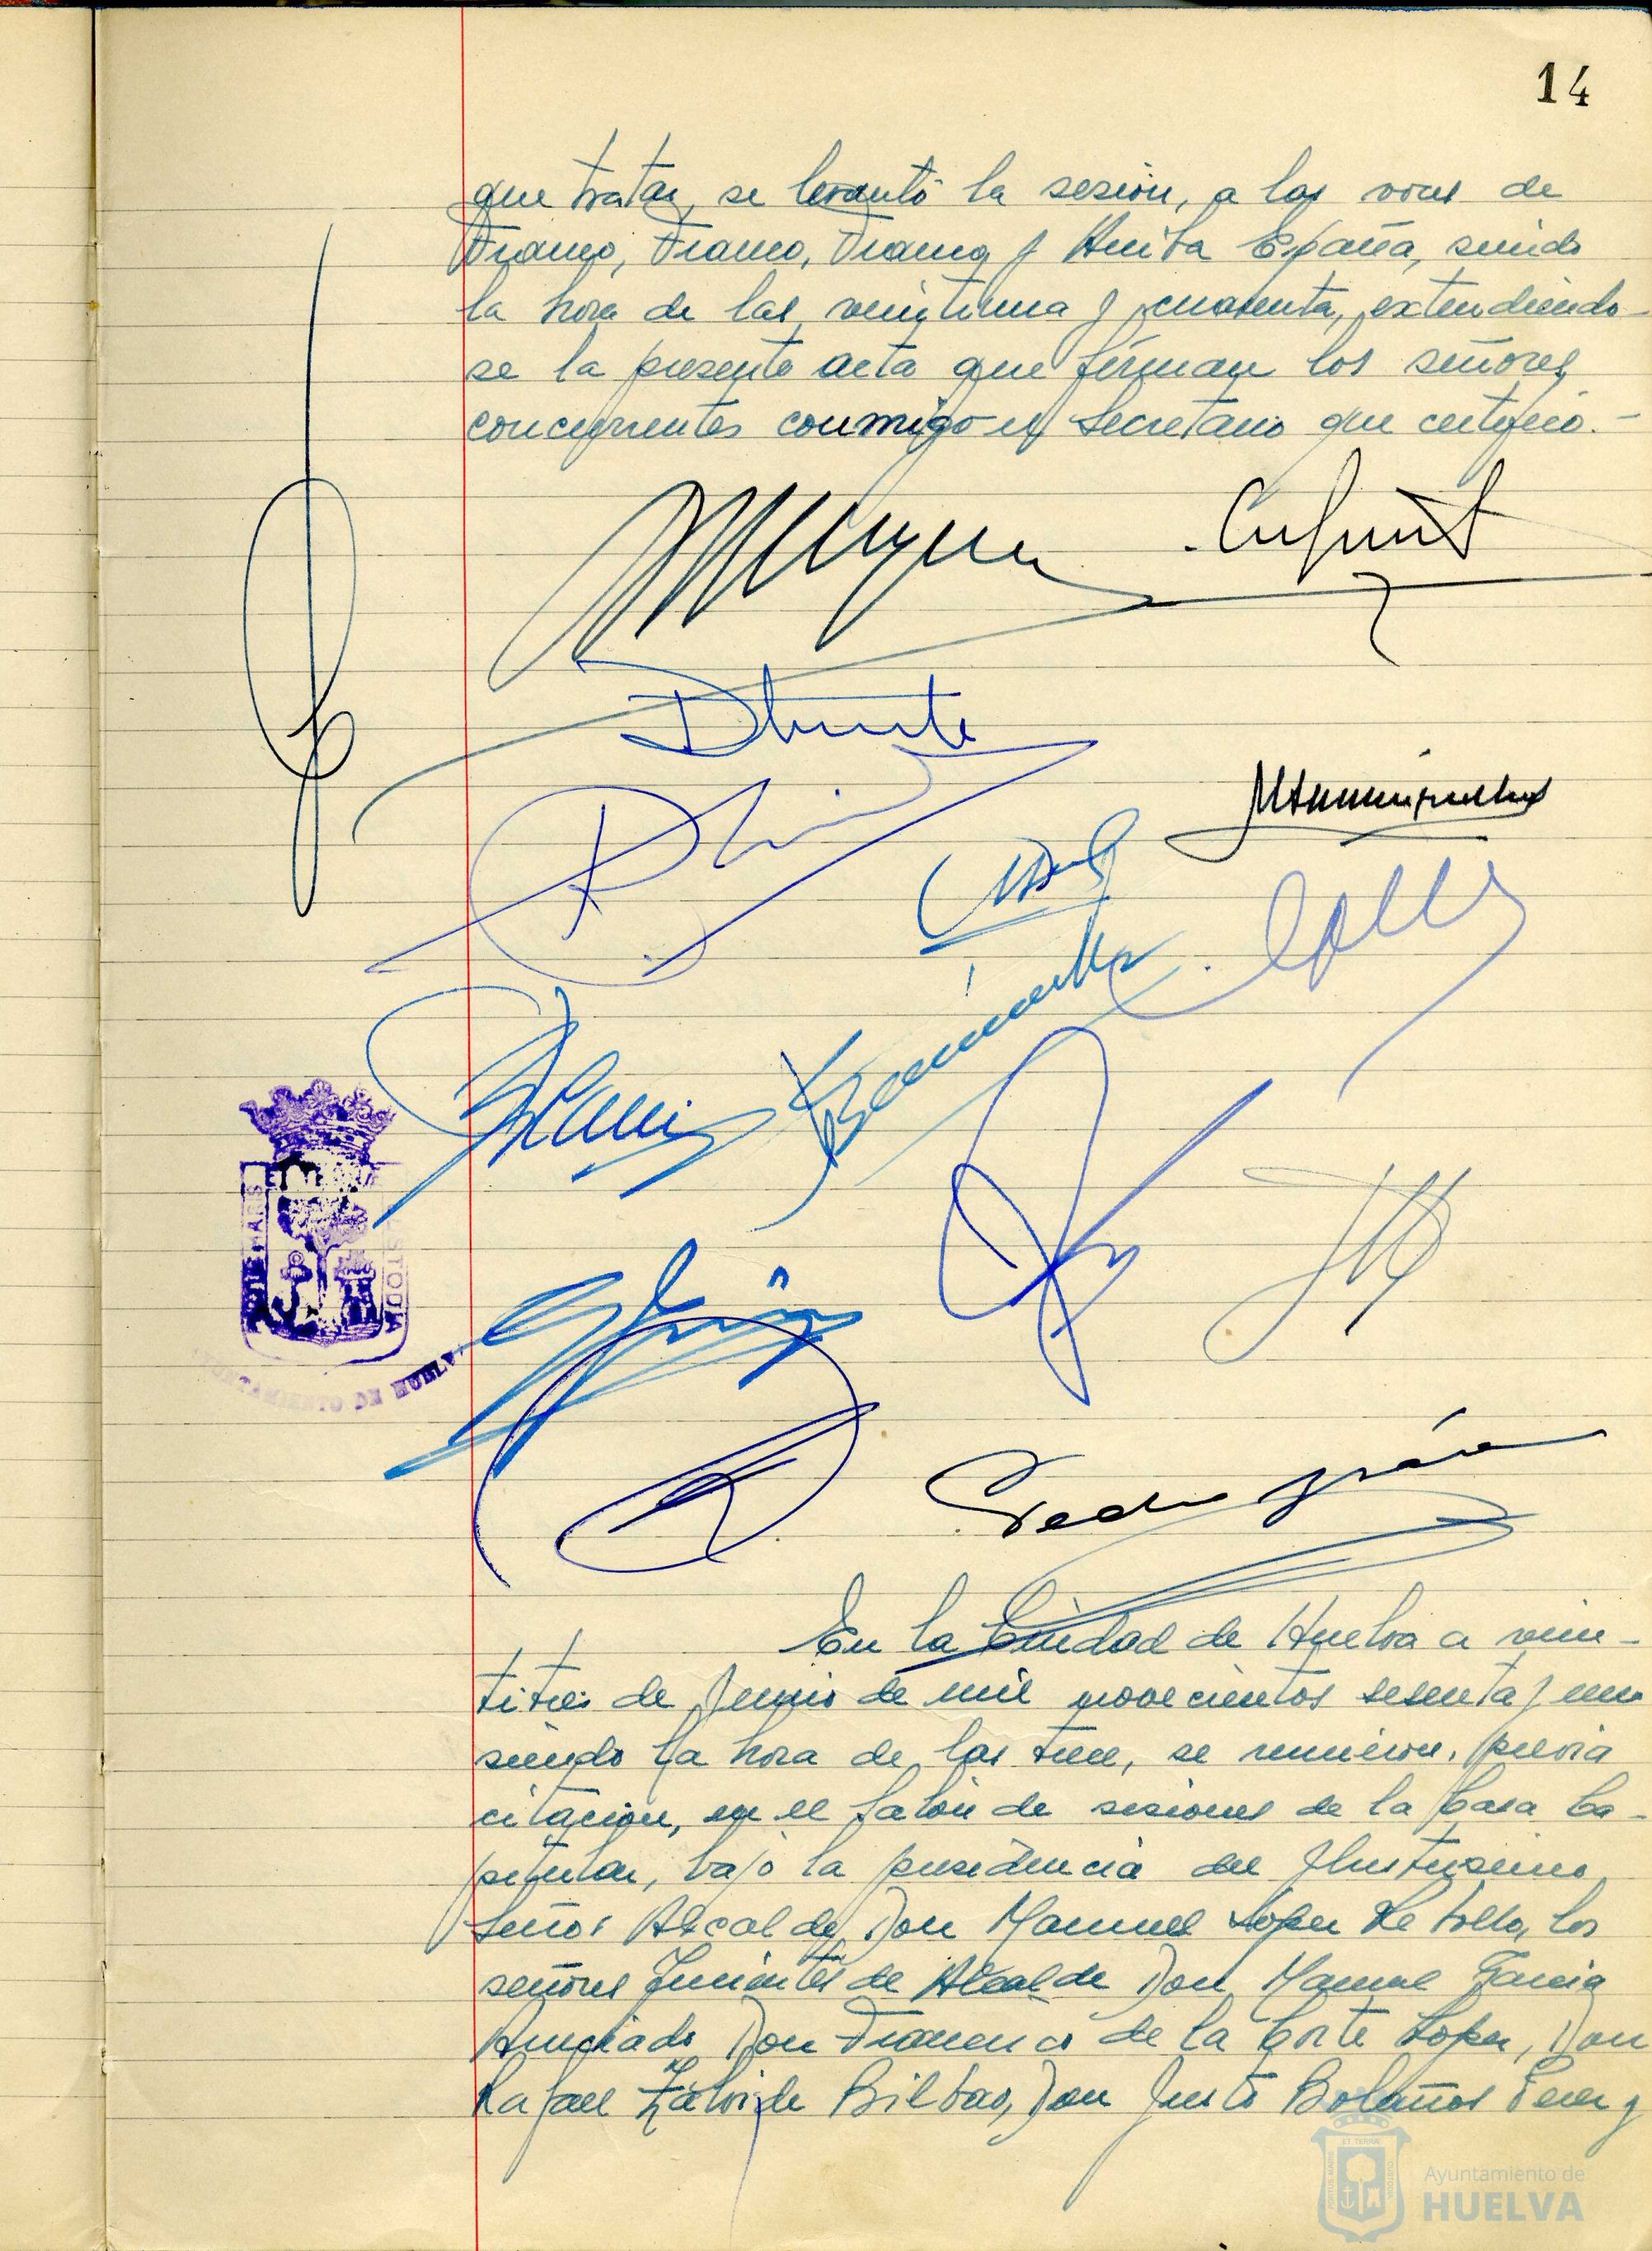 14
que tratar, se levantó la sesión, a las voces de
Franco, Franco, Franco y Arriba España, siendo
la hora de las veintiuna y cuarenta, extendiendo-
se la presente acta que firman los señores
concurrentes conmigo el Secretario que certifico.-
Duarte
Pedro
PORTUS MARIS
CUSTODIA
AYUNTAMIENTO DE HUELVA
En la Ciudad de Huelva a vein-
titres de Junio de mil novecientos sesenta y uno
siendo la hora de las trece, se reunieron, previa
citación, en el Salón de sesiones de la Casa Ca-
pitular, bajo la presidencia del Ilustrisimo
Señor Alcalde, Don Manuel Lopez Rebollo, los
señores Tenientes de Alcalde Don Manuel Garcia
Don Francisco de la Corte Lopez, Don
Rafael Zalvide Bilbao, Don Justo Bolaños Perez y
Ayuntamiento de
HUELVA